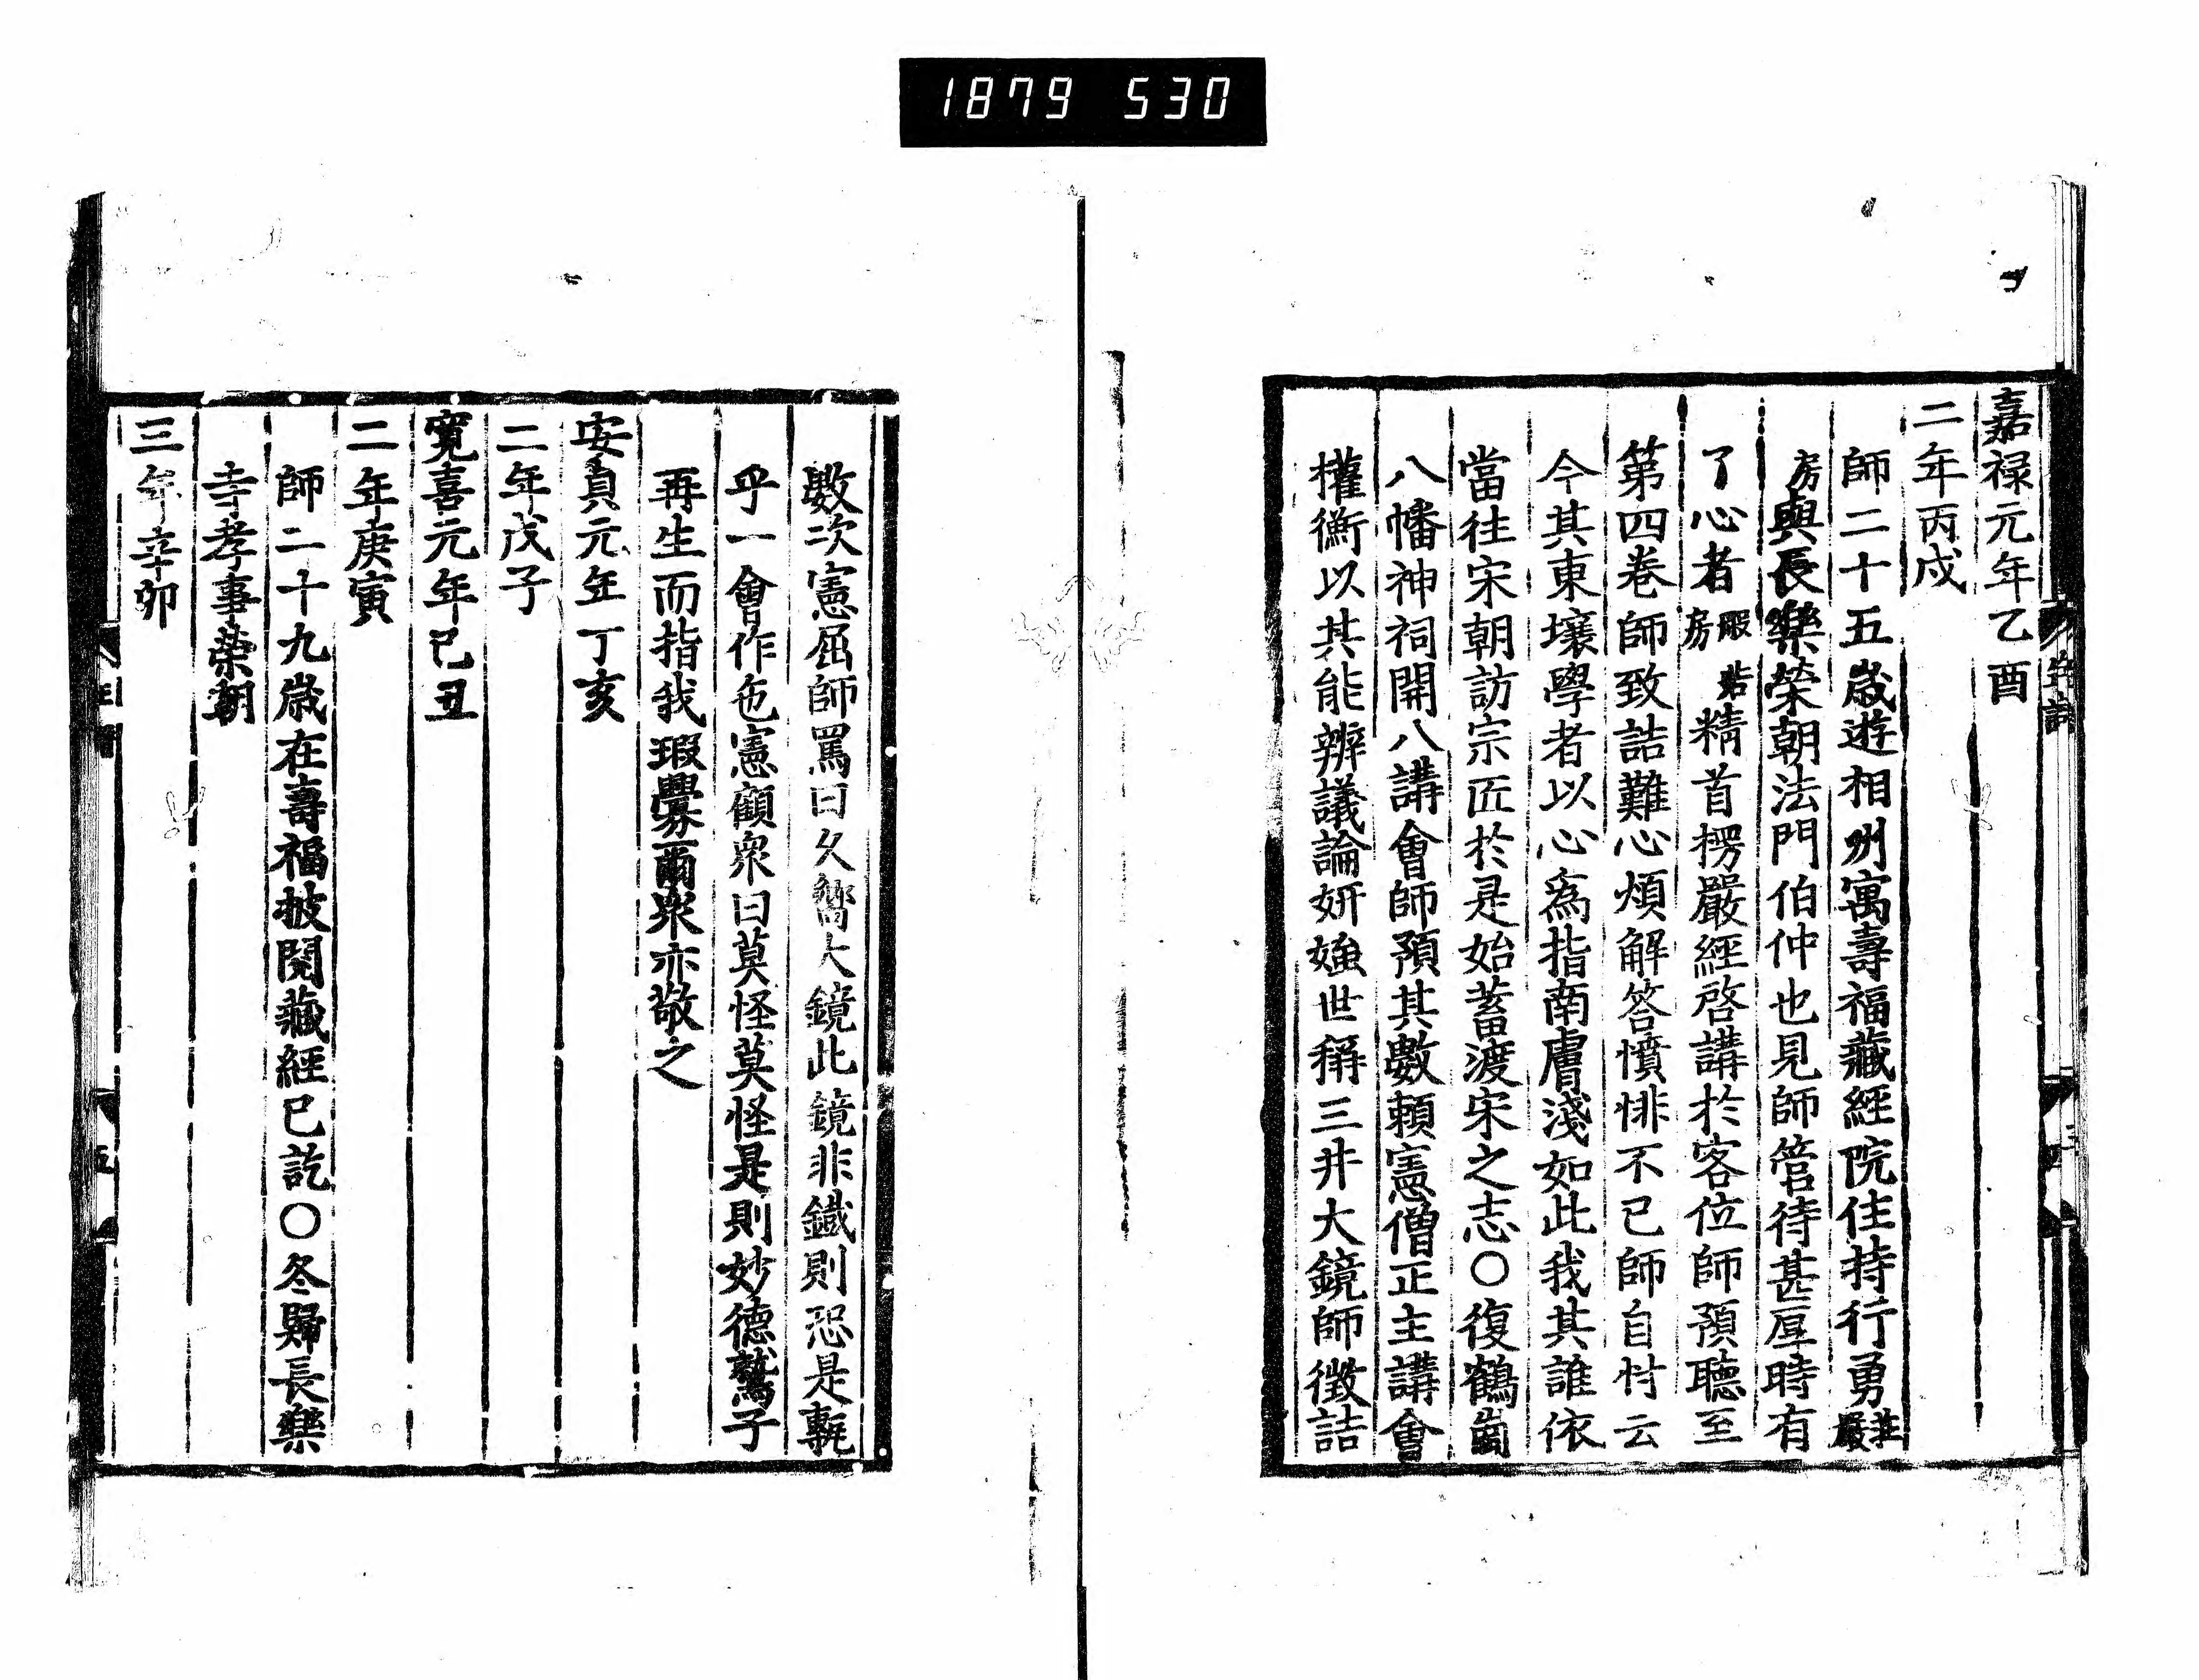 1879 530
嘉禄元年乙酉
二年丙戌
師二十五歳遊相州寓壽福藏經院住持行勇莊嚴
房與長樂榮朝法門伯仲也見師管待甚厚時有
了心者房精首楞嚴經啓講於客位師預聽至
第四卷師致詰難心煩解答憤悱不已師自忖云
今其東壤學者以心爲指南膚淺如此我其誰依
當往宋朝訪宗匠於是始蓄渡宋之志〇復鶴崗
八幡神祠開八講會師預其數頼憲僧正主講會
權衡以其能辨議論妍媸世稱三井大鏡師徴詰
數次憲屈師罵曰久嚮大鏡此鏡非鐵則恐是甎
乎一會作色憲顧衆曰莫怪莫怪是則妙德鷲子
再生而指我瑕釁爾衆亦敬之
安貞元年丁亥
二年戊子
寛喜元年己丑
二年庚寅
師二十九歳在壽福披閲藏經已訖〇冬歸長樂
寺孝事榮朝
三年辛卯